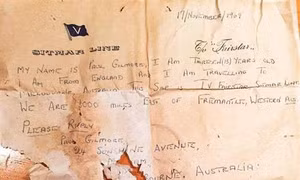 17/NOVEMBER/1969
V
SITMAR LINE
TSS Fairstar
MY NAME IS PAUL GILMORE, I AM THIRTEEN YEARS OLD
I AM FROM ENGLAND AND I AM TRAVELLING TO
MELBOURNE, AUSTRALIA THIS SHIP IS FAIRSTAR SITMAR LINE
WE ARE 1000 MILES EAST OF FREMANTLE, WESTERN AUS
PLEASE REPLY
PAUL GILMORE,
SUNSHINE AVENUE,
AUSTRALIA.